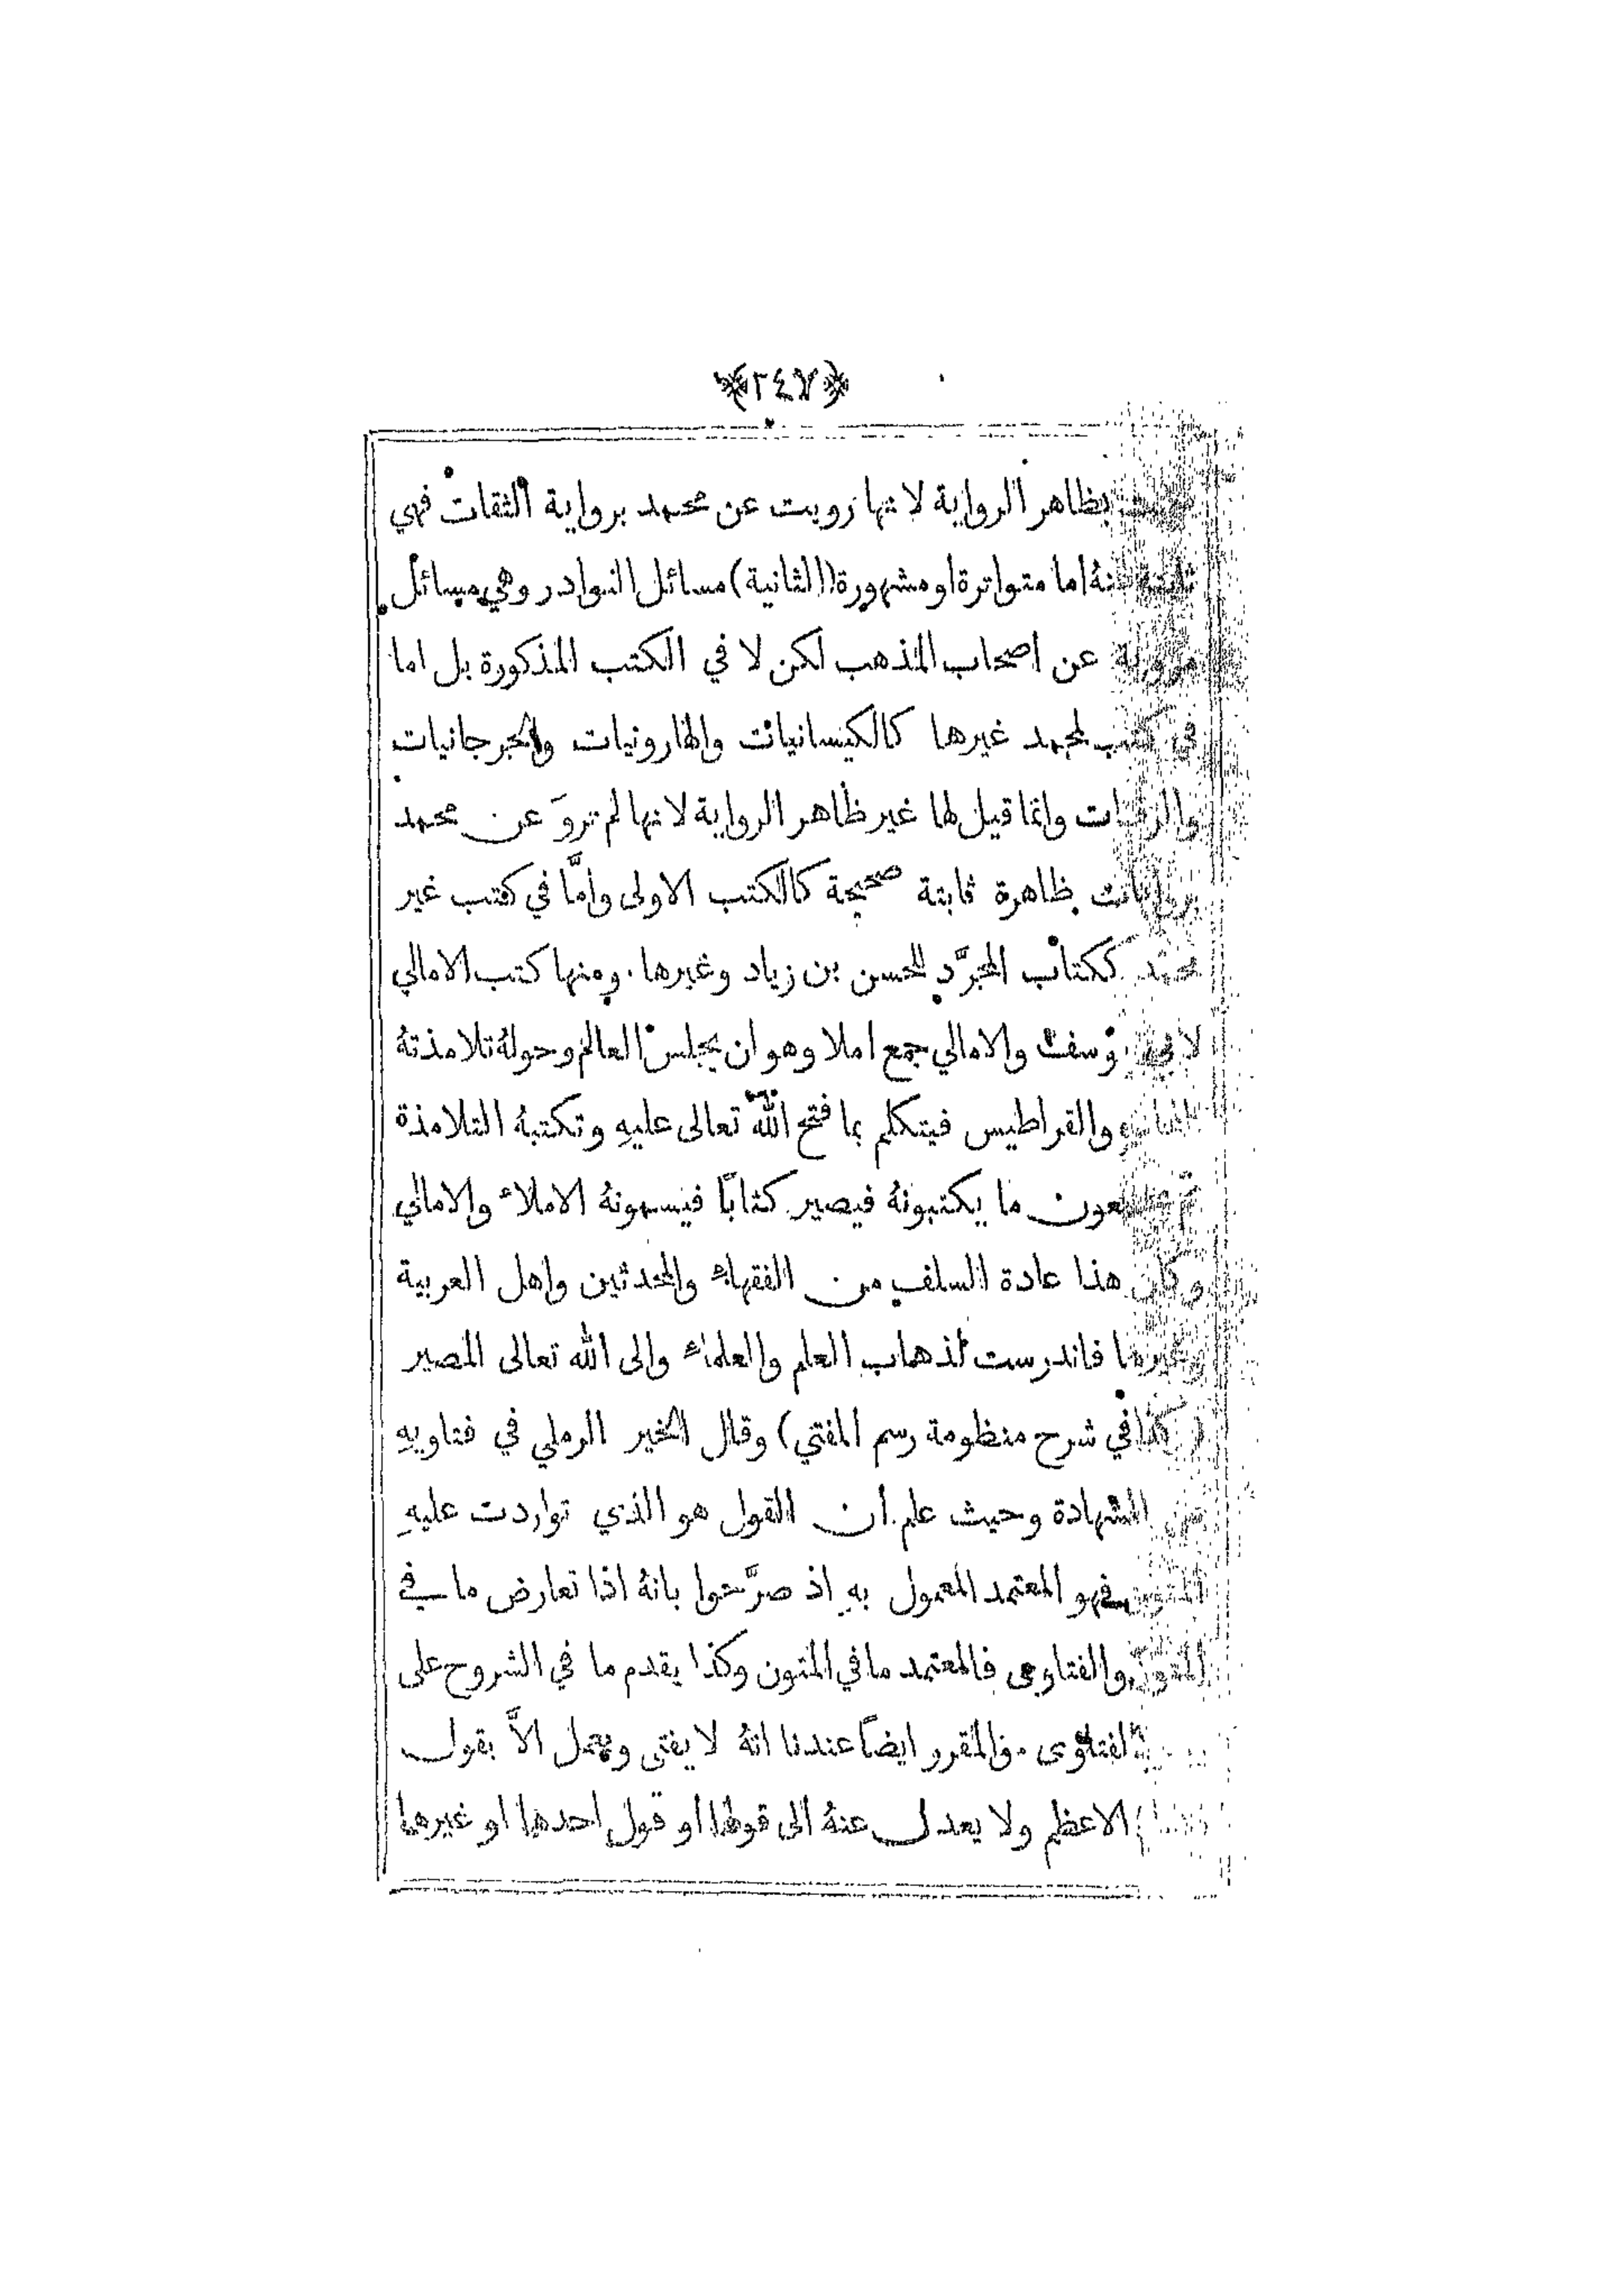 ﴿٢٤٧﴾
بظاهر الرواية لانها رويت عن محمد برواية الثقات فهي
ثابتة عنهُ اما متواترة او مشهورة (الثانية) مسائل النوادر وهي مسائل
مروية عن اصحاب المذهب لكن لا في الكتب المذكورة بل اما
في كتب لمحمد غيرها كالكيسانيات والهارونيات والجرجانيات
والرقيات وانما قيل لها غير ظاهر الرواية لانها لم تروَ عن محمد
بروايات ظاهرة ثابتة صحيحة كالكتب الاولى وامَّا في كتب غير
محمد ككتاب المجرَّد للحسن بن زياد وغيرها . ومنها كتب الامالي
لابي يوسف والامالي جمع املا وهو ان يجلس العالم وحولهُ تلامذتهُ
بالمحابر والقراطيس فيتكلم بما فتح الله تعالى عليهِ وتكتبهُ التلامذة
ثم يجمعون ما يكتبونهُ فيصير كتابًا فيسمونهُ الاملاء والامالي
وكان هذا عادة السلف من الفقهاء والمحدثين واهل العربية
وغيرها فاندرست لذهاب العلم والعلماء والى الله تعالى المصير
(كذا في شرح منظومة رسم المفتي) وقال الخير الرملي في فتاويهِ
من الشهادة وحيث علم ان القول هو الذي تواردت عليهِ
المتون فهو المعتمد المعمول بهِ اذ صرَّحوا بانهُ اذا تعارض ما في
المتون والفتاوى فالمعتمد ما في المتون وكذا يقدم ما في الشروح على
الفتاوى . والمقرر ايضًا عندنا انهُ لا يفتى ويعمل الاَّ بقول
الاعظم ولا يعدل عنهُ الى قولهما او قول احدهما او غيرهما